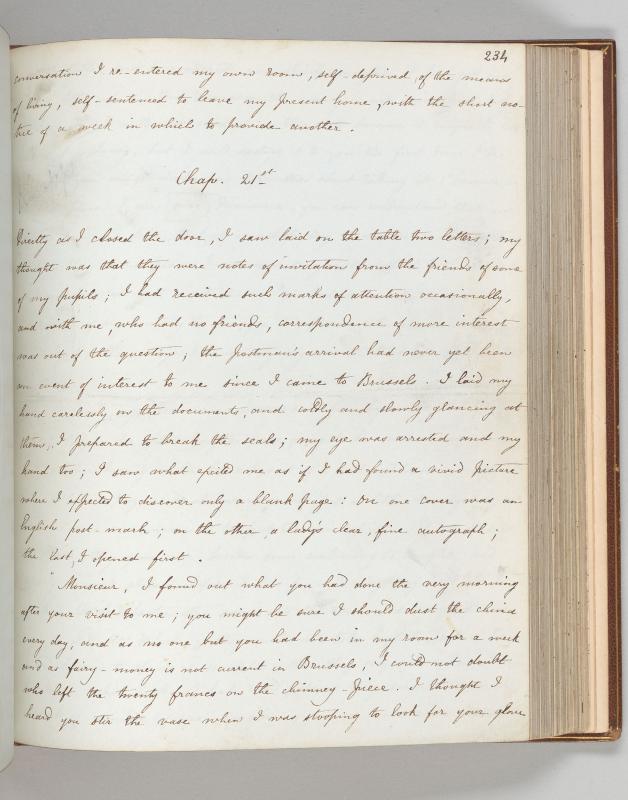 234
conversation I re-entered my own room, self-deprived of the means
of living, self-sentenced to leave my present home, with the short no-
tice of a week in which to provide another.
Chap. 21st
Directly as I closed the door, I saw laid on the table two letters; my
thought was that they were notes of invitation from the friends of some
of my pupils; I had received such marks of attention occasionally,
and with me, who had no friends, correspondence of more interest
was out of the question; the postman's arrival had never yet been
an event of interest to me since I came to Brussels. I laid my
hand carelessly on the documents, and coldly and slowly glancing at
them, I prepared to break the seals; my eye was arrested and my
hand too; I saw what excited me as if I had found a vivid picture
where I expected to discover only a blank page: on one cover was an
English post-mark; on the other, a lady's clear, fine autograph;
the last I opened first.
"Monsieur, I found out what you had done the very morning
after your visit to me; you might be sure I should dust the china
every day, and as no one but you had been in my room for a week
and as fairy-money is not current in Brussels, I could not doubt
who left the twenty francs on the chimney-piece. I thought I
heard you stir the vase when I was stooping to look for your glove